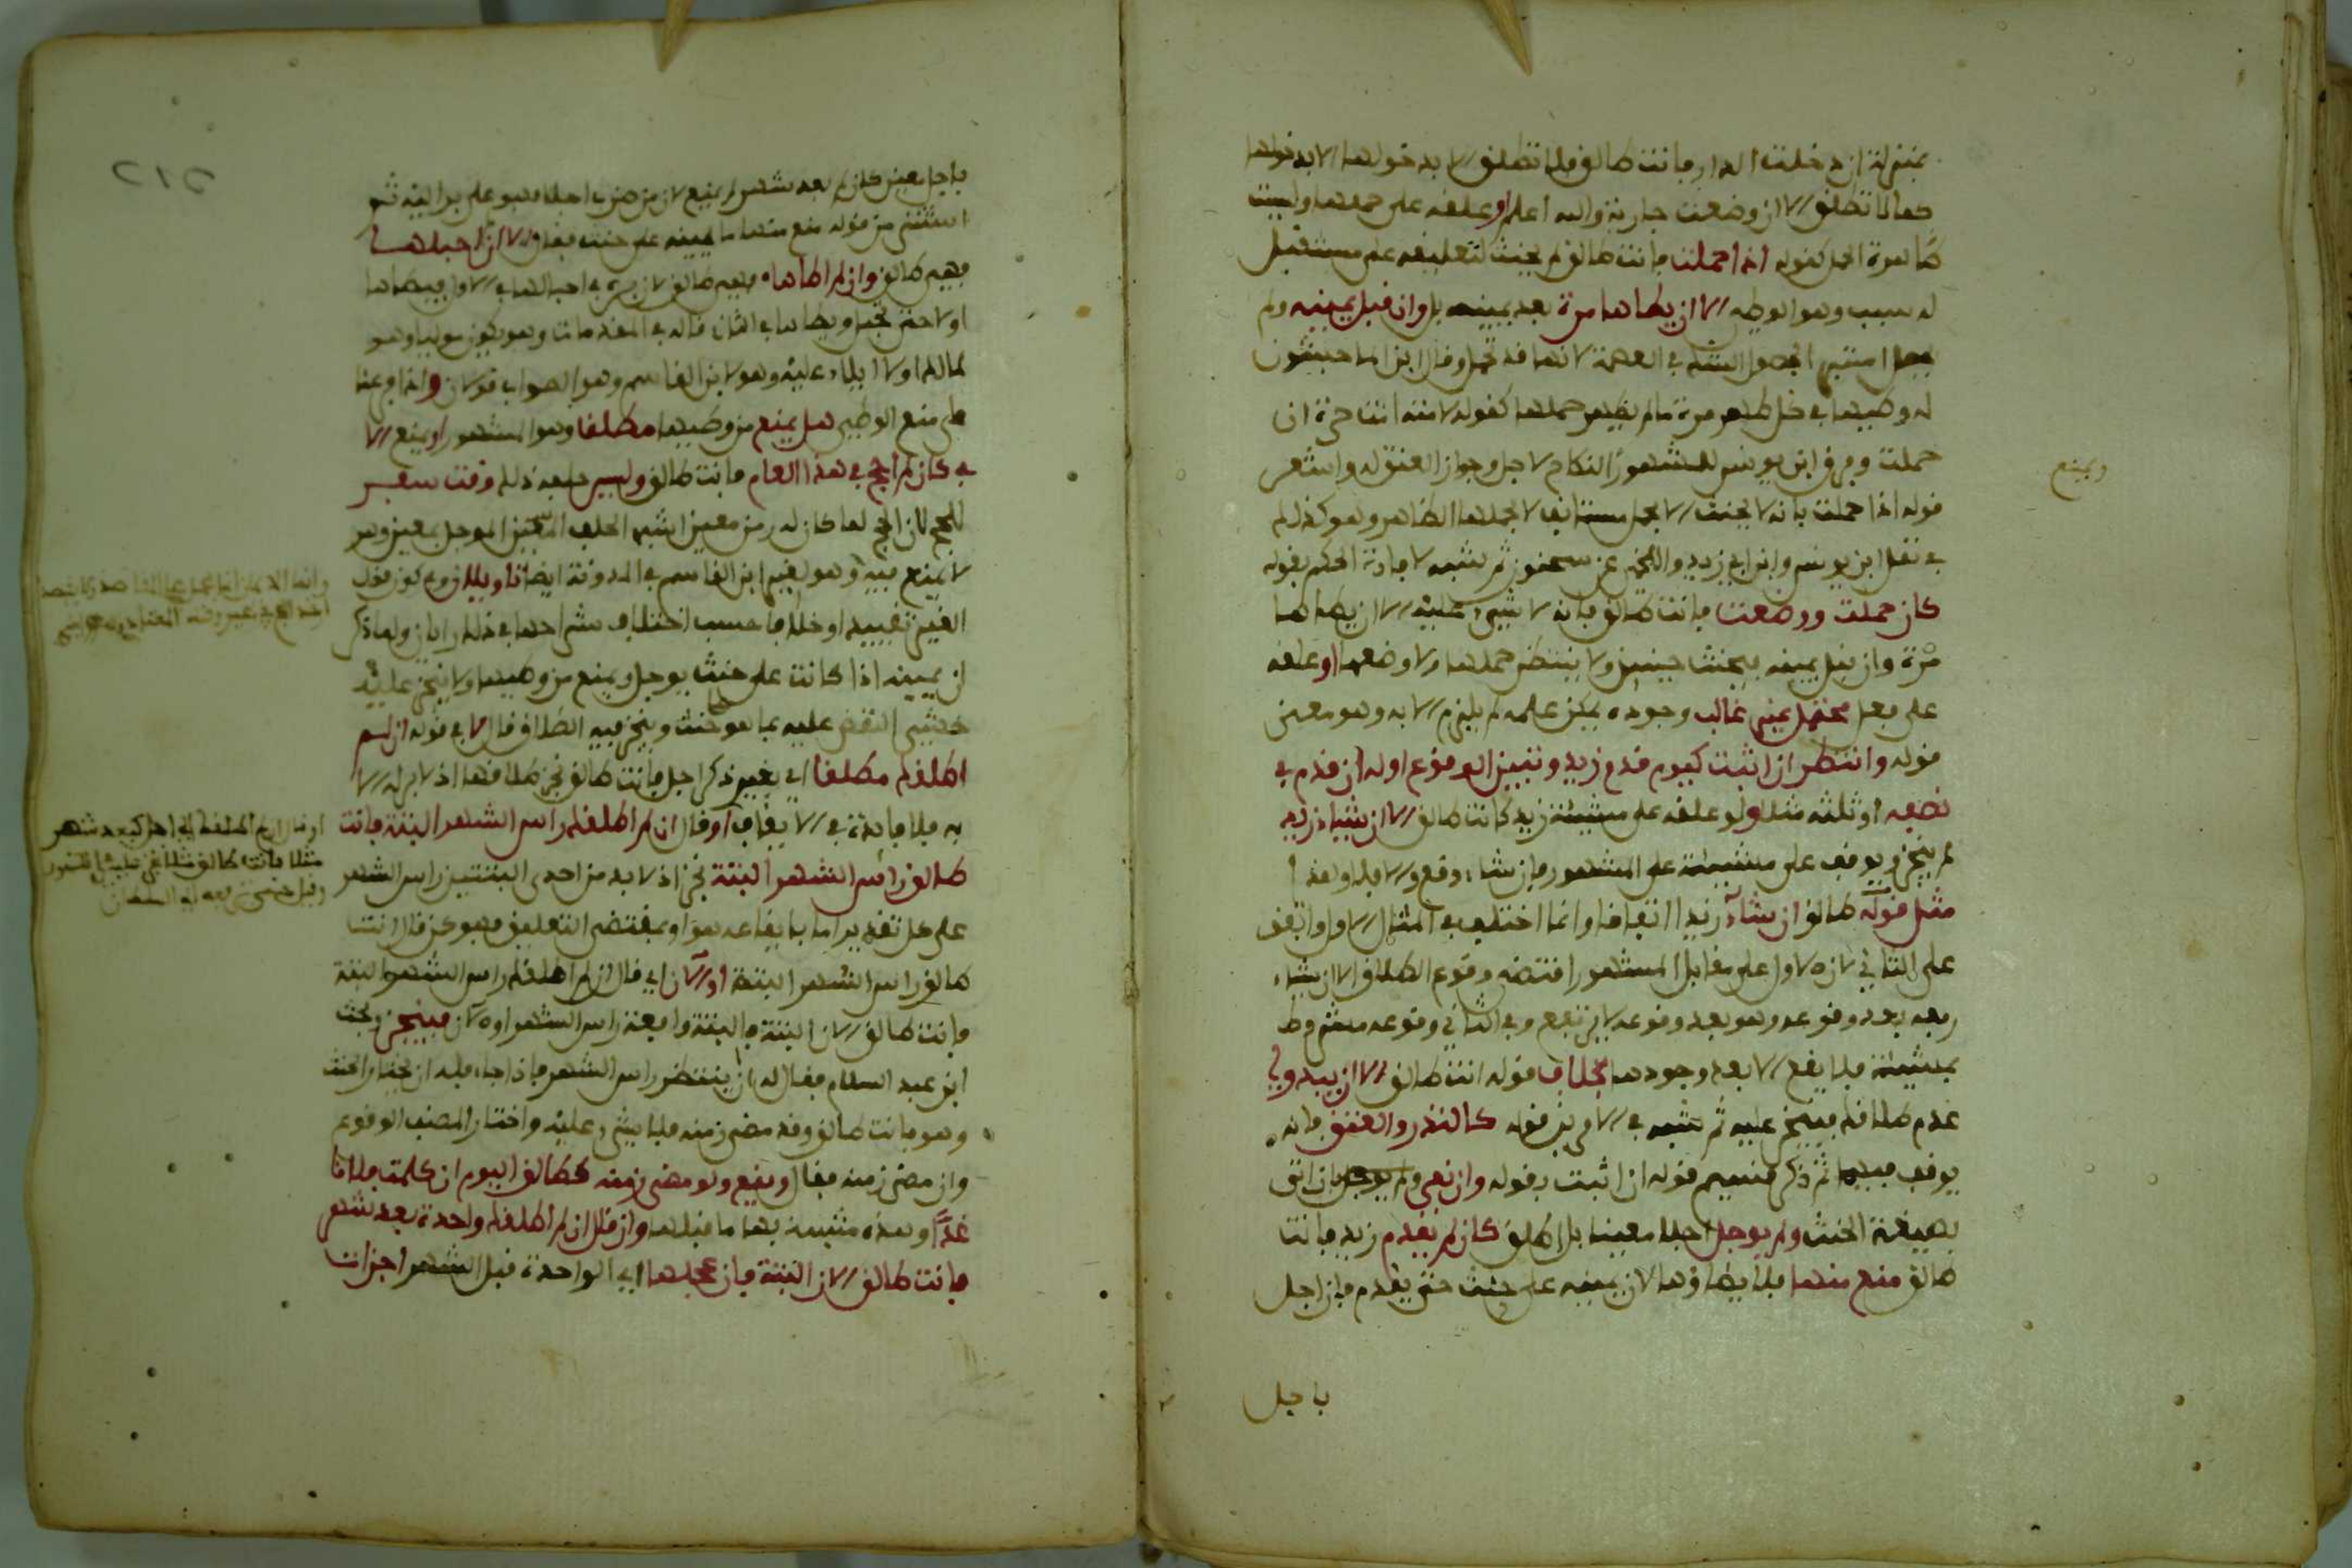 بمنزلة ان دخلت الدار فانت طالق فلا تطلق الا بدخولها الا بدخولها
كما لا تطلق الا ان وضعت جارية والله اعلم او علقه على حملها وليست
ظاهرة الحمل كقوله اذا حملت فانت طالق لم يحنث لتعليقه على مستقبل
له سبب وهو الوطء الا ان يطاها مرة بعد يمينه بل وان قبل يمينه ولم
لحصول الشك في العصمة لانها قد تحمل وقال ابن الماجشون
له وطيها في كل طهر مرة ما لم يظهر حملها كقوله لامته انت حرة ان
حملت وفرق ابن يونس للمشهور النكاح لاجل وجواز العتق له واشعر
قوله اذا حملت بانه لا يحنث الا بحمل مستانف لا بحملها الظاهر وهو كذلك
في نقل ابن يونس وابن ابي زيد واللخمي عن سحنون ثم شبه لافادة الحكم بقوله
كان حملت ووضعت فانت طالق فانه لا شيء عليه الا ان يطاها
مرة وان قبل يمينه فيحنث حينئذ ولا ينتظر حملها ولا وضعها او علقه
على فعل محتمل غير غالب وجوده يمكن علمه لم يلزم الا به وهو معنى
قوله وانتظر ان اثبت كيوم قدوم زيد وتبين الوقوع اوله ان قدم في
نصفه او ثلثه مثلا ولو علقه على مشيئة زيد كانت طالق الا ان يشاء زيد
لم ينجز ويوقف على مشيئته على المشهور فان شاء وقع والا فلا وهذا
مثل قوله طالق ان شاء زيد اتفاقا وانما اختلف في المثال الاول واتفق
على الثاني لان الاول على مقابل المشهور اقتضى وقوع الطلاق الا ان يشاء
رفعه بعد وقوعه وهو بعد وقوعه لا يرتفع وفي الثاني وقوعه مشروط
بمشيئته فلا يقع الا بعد وجودها بخلاف قوله انت طالق الا ان يبدو لي
عدم طلاقك فينجز عليه ثم شبه في الامرين قوله كالنذر والعتق فانه
يوقف فيهما ثم ذكر قسيم قوله ان اثبت بقوله وان نفى ولم يوجل بان اتى
بصيغة الحنث ولم يوجل اجلا معينا بل اطلق كان لم يقدم زيد فانت
طالق منع منها فلا يطاؤها لان يمينه على حنث حتى يقدم فان اجل
باجل
ويمنع
باجل معين كان لم بعد شهر لم يمنع لان من ضرب اجلا فهو على بر اليه ثم
استثنى من قوله منع منها ما يمينه على حنث فقال الا ان لم احبلها
فهي طالق وان لم اطاها فهي طالق لان بره في احبالها في الاول فيطاها
او لا حتى تحمل ويطاها في الثاني قال في المقدمات وهل يكون موليا وهو
لمالك او لا ايلاء عليه وهو لابن القاسم وهو الصواب قولان واذا فرعنا
على منع الوطء هل يمنع من وطيها مطلقا وهو المشهور او يمنع الا
في كان لم احج في هذا العام فانت طالق وليس حلفه ذلك وقت سفر
للحج لان الحج لما كان له زمن معين اشبه الحلف المعين الموجل بمعين وهو
لا يمنع فيه وهو لغير ابن القاسم في المدونة ايضا تاويلان وفي كون قول
الغير تقييد او خلافا حسب اختلاف شراحها في ذلك رايان ولما ذكر
ان يمينه اذا كانت على حنث يوجل ويمنع من وطيها ولا ينجز عليه
خشي النقض عليه بما هو حنث وينجز فيه الطلاق قال الا في قوله ان لم
اطلقك مطلقا اي بغير ذكر اجل فانت طالق نجز طلاقها اذ لا بر له الا
به فلا فائدة في الايقاف او قال ان لم اطلقك راس الشهر البتة فانت
طالق راس الشهر البتة نجز اذ لا بد من احدى البتتين راس الشهر
على كل تقدير اما بايقاعه هو او بمقتضى التعليق فهو كمن قال انت
طالق راس الشهر البتة او الان اي قال ان لم اطلقك راس الشهر البتة
فانت طالق الان البتة فالبتة واقعة راس الشهر او الان فينجز وبحث
ابن عبد السلام فقال له ان ينتظر راس الشهر فاذا جاء فله ان يختار الحنث
وهو فانت طالق وقد مضى زمنه فلا شيء عليه واختار المصنف الوقوع
وان مضى زمنه فقال ويقع ولو مضى زمنه كطالق اليوم ان كلمت فلانا
غدا وهذه مشبهة بها ما قبلها وان قال ان لم اطلقك واحدة بعد شهر
فانت طالق الان البتة فان عجلها اي الواحدة قبل الشهر اجزات
او قال ان لم اطلقك الى اجل كبعد شهر
مثلا فانت طالق
٢١٥